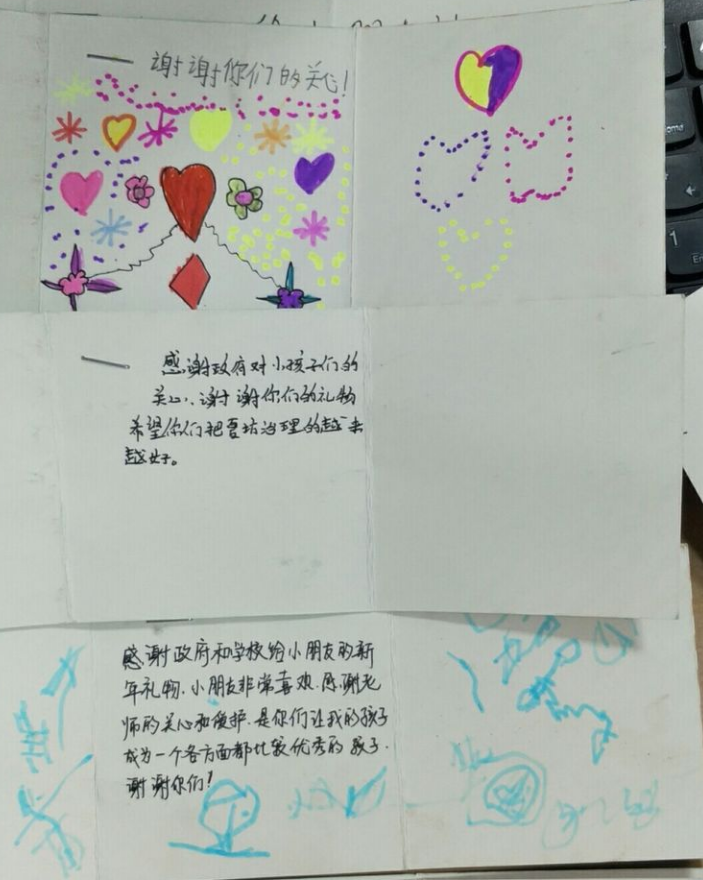 谢谢你们的关心!
感谢政府对小孩子们的
关心,谢谢你们的礼物
希望你们把夏坊治理的越来
越好。
感谢政府和学校给小朋友的新
年礼物,小朋友非常喜欢.感谢老
师的关心和爱护.是你们让我的孩子
成为一个各方面都比较优秀的孩子.
谢谢你们!